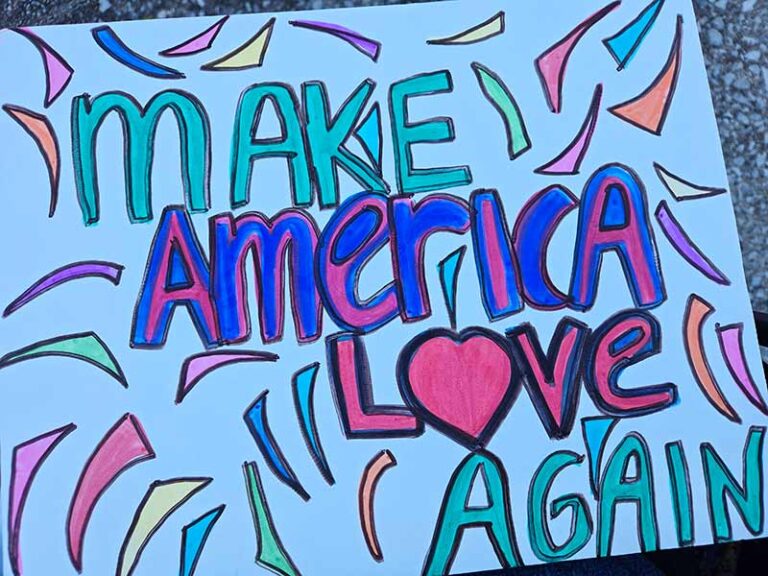 MAKE
AmerICA
L♥Ve
AGAIN